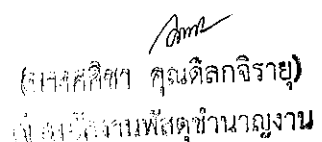 คุณดิลกจิรายุ)
เจ้าพนักงานพัสดุชำนาญงาน